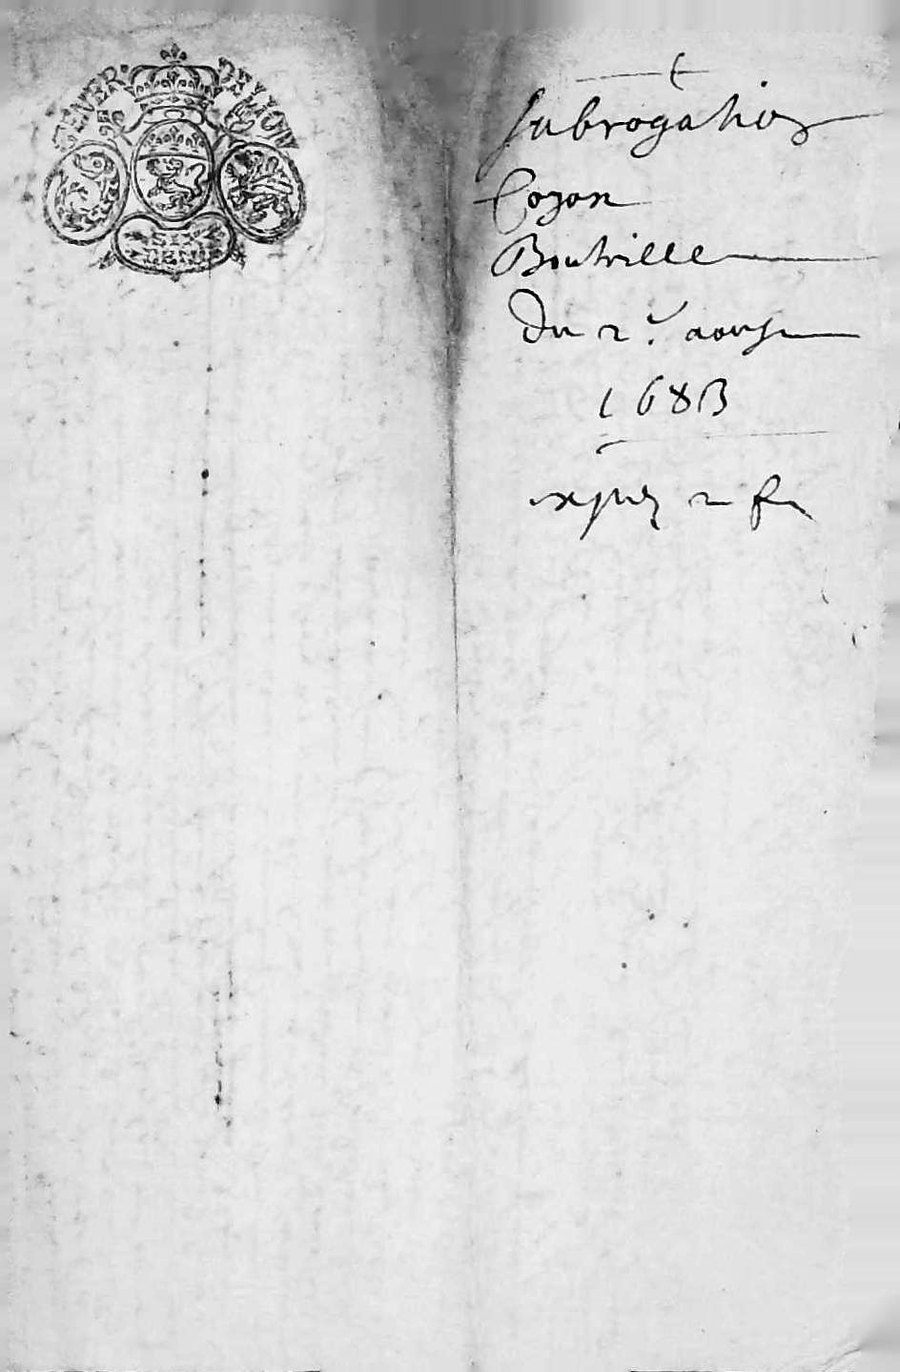 GENER. DE LION
SIX
DENI
Subrogation
Cozon
Boutville
Du 2e. aoust
1683
expéd 2 f